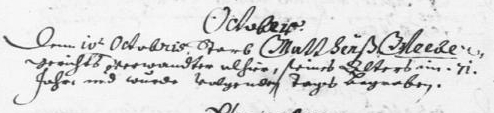 Octobris.
Dem 10t Octobris, starb Mattheuß
gerichts verwandter alhier, seines Alters im 71.
Jahr und wurde volgenden Tags begraben.